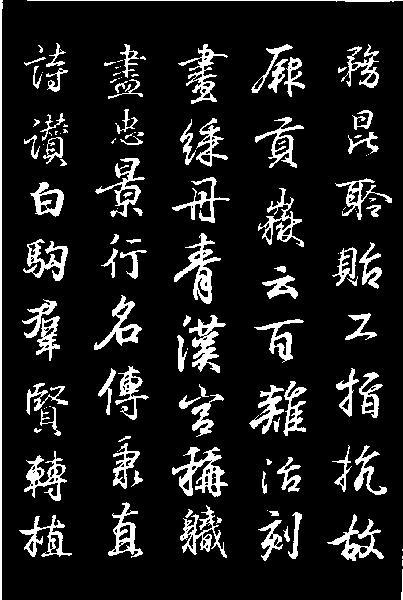 務昆聆貽工指抗故
厥貢嶽云百難刻
畫綵丹青漢宮稱軄
盡忠景行名傳秉直
詩讚白駒羣賢轉植